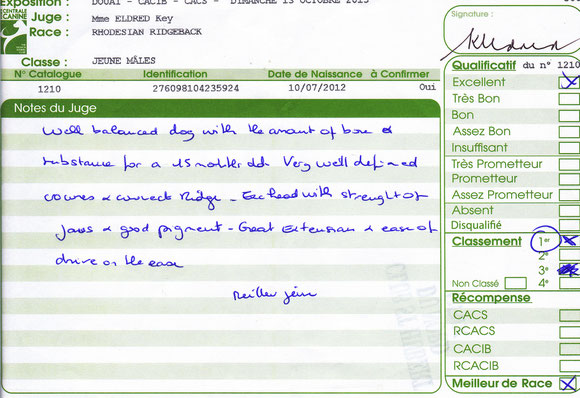 Exposition : DOUAI - CACIB - CACS - DIMANCHE 13 OCTOBRE 2013
CENTRALE CANINE
Juge : Mme ELDRED Key
Race : RHODESIAN RIDGEBACK
Classe : JEUNE MÂLES
N° Catalogue Identification Date de Naissance à Confirmer
1210 276098104235924 10/07/2012 Oui
Notes du Juge
Well balanced dog with the amount of bone &
substance for a 15 Very well defined
crowns & correct Ridge - head with strenght of
Jaws & good pigment - Great Extension & ease of
drive on the
Meiller jeune
Signature :
Qualificatif du n° 1210
Excellent
Très Bon
Bon
Assez Bon
Insuffisant
Très Prometteur
Prometteur
Assez Prometteur
Absent
Disqualifié
Classement 1er
2e
3e
Non Classé 4e
Récompense
CACS
RCACS
CACIB
RCACIB
Meilleur de Race